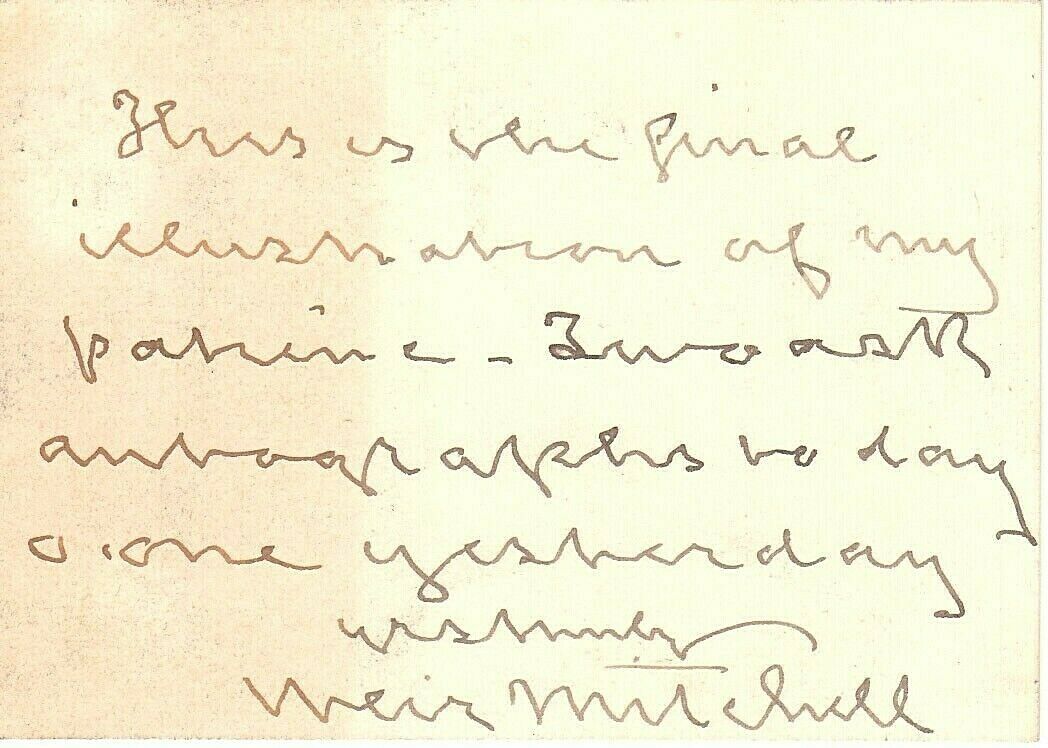 This is the final
illustration of my
patience - Two ask
autographs to day
one yesterday
yrs truly
Weir Mitchell